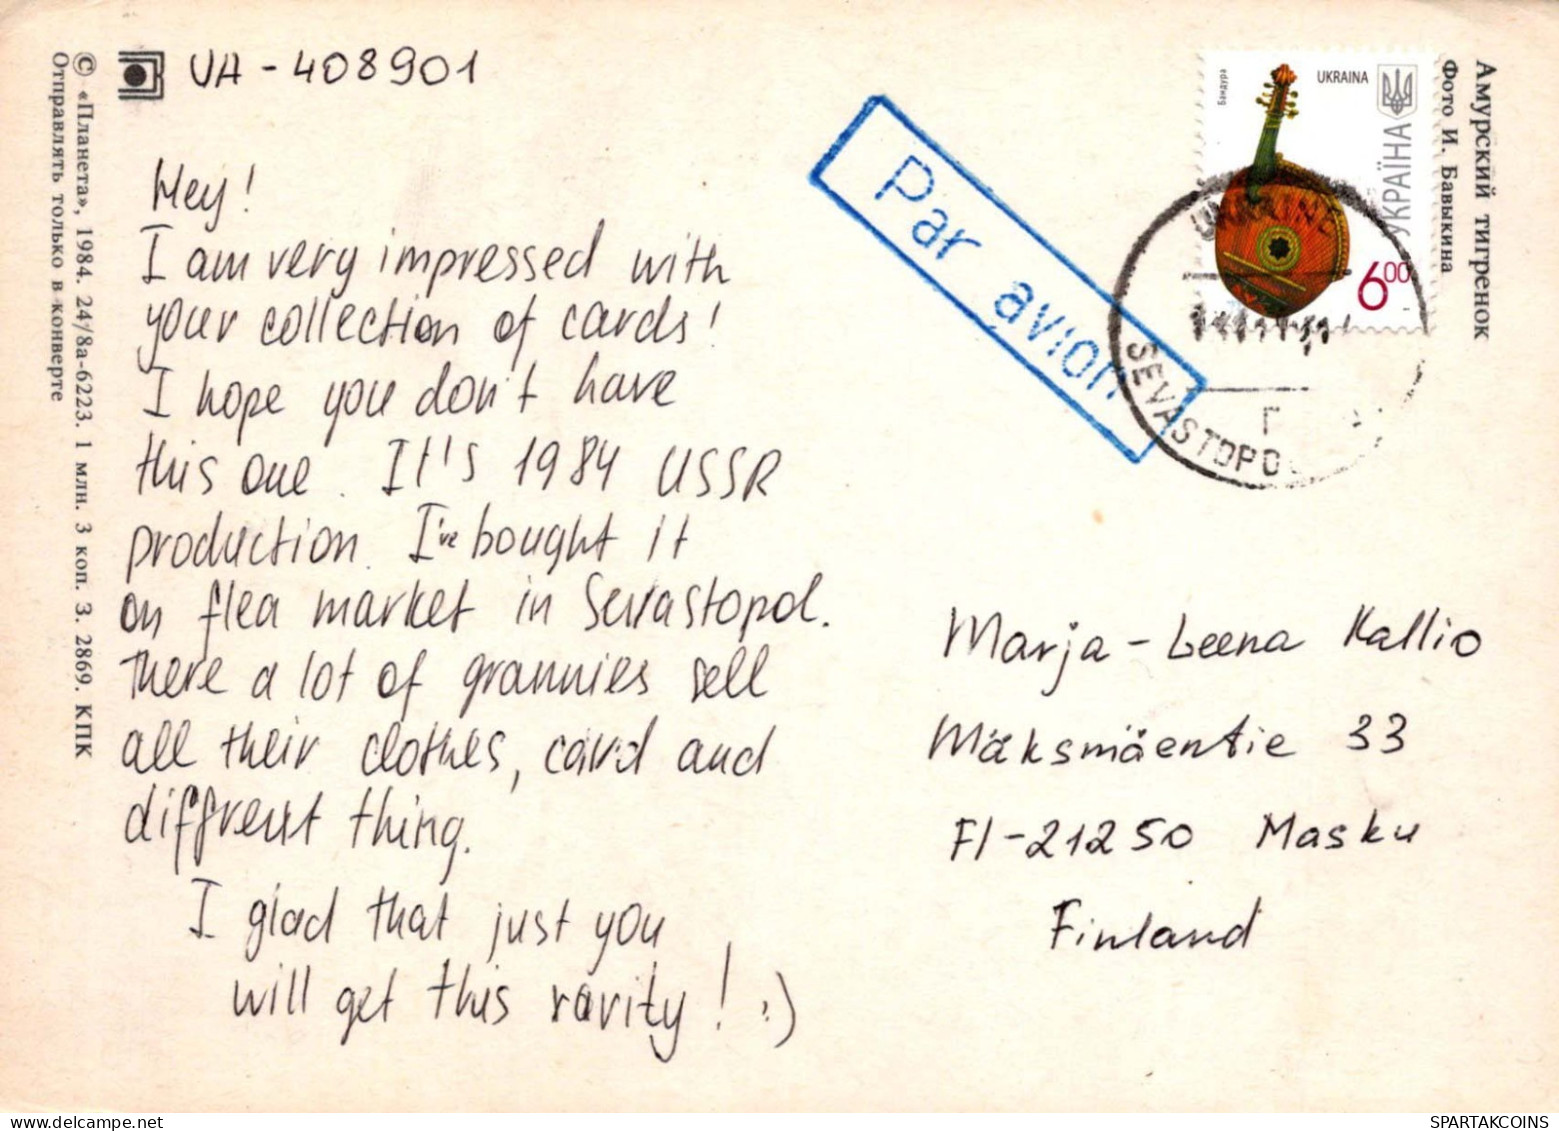 UA - 408901
Hey!
I am very impressed with
your collection of cards!
I hope you don't have
this one. It's 1984 USSR
production. I've bought it
on flea market in Sevastopol.
There a lot of grannies sell
all their clothes, card and
different thing.
I glad that just you
will get this rarity! :)
© «Планета», 1984. 24/8а-6223. 1 млн. 3 коп. З. 2869. КПК
Отправлять только в конверте
Par avion
Бандура
UKRAINA
УКРАЇНА
6.00
UKRAINE
SEVASTOPO
Г
Амурский тигренок
Фото И. Бавыкина
Marja-Leena Kallio
Mäksmäentie 33
FI-21250 Masku
Finland
SPARTAKCOINS